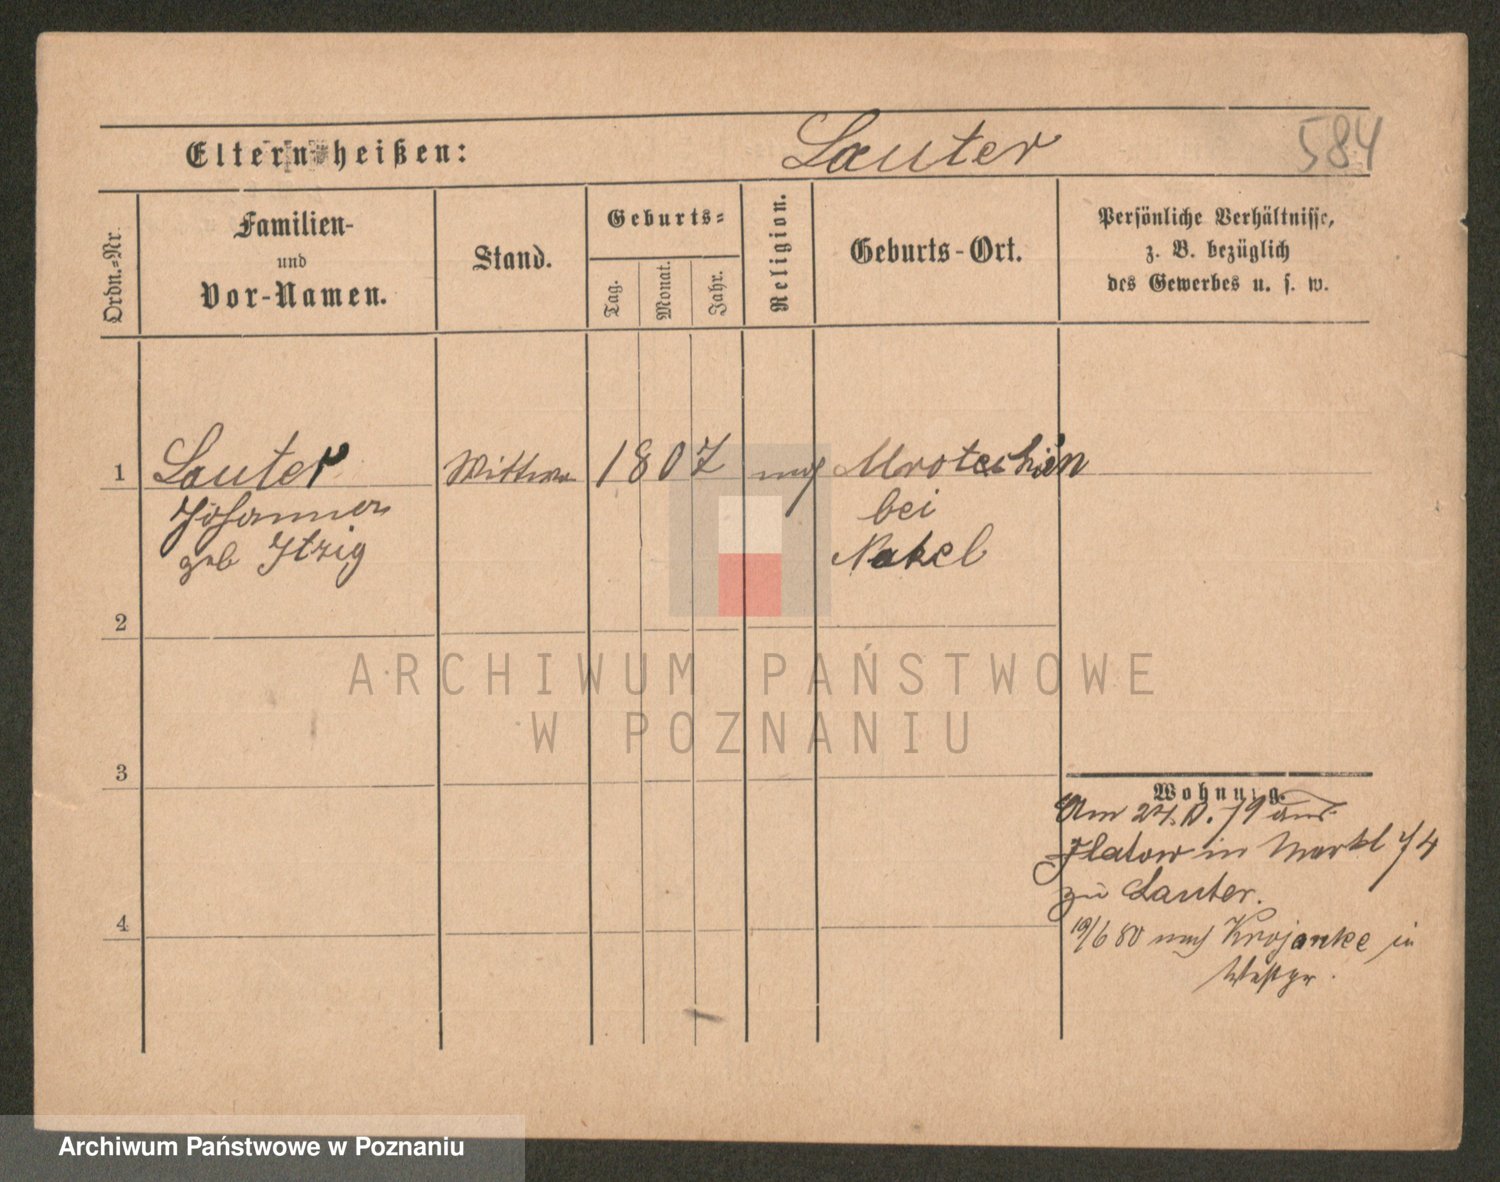 Eltern heißen:
Lauter
584
Ordn.=Nr.
Familien-
und
Vor-Namen.
Stand.
Geburts=
Tag.
Monat.
Jahr.
Religion.
Geburts-Ort.
Persönliche Verhältnisse,
z. B. bezüglich
des Gewerbes u. s. w.
1
Lauter
Johanna
geb Itzig
Wittwe
1807
mos
Mrotschen
bei
Nakel
2
3
4
Wohnung.
Am 24. 79 aus
Flatow in Markt 74
zu Lauter.
19/6 80 nach Krojanke in
Westpr.
ARCHIWUM PAŃSTWOWE
W POZNANIU
Archiwum Państwowe w Poznaniu